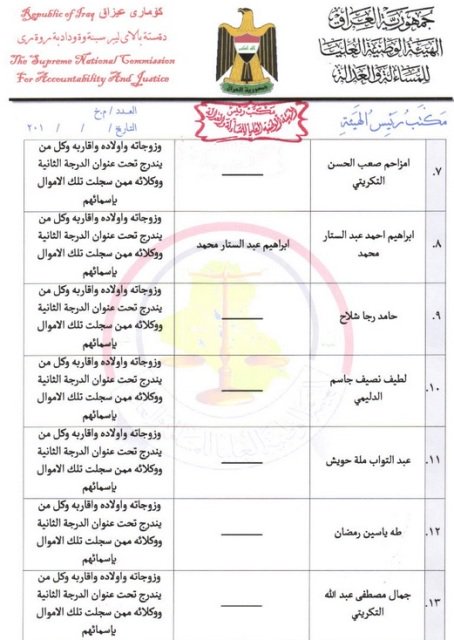 جمهورية العراق
الهيئة الوطنية العليا
للمساءلة والعدالة
كۆماری عیراق Republic of Iraq
The Supreme National Commission
For Accountability And Justice
جمهورية العراق
مكتب رئيس الهيئة
مكتب رئيس
الهيئة الوطنية العليا للمساءلة والعدالة
العدد/ م.خ
التاريخ/ / / ٢٠١
٧. امزاحم صعب الحسن التكريتي ——— وزوجاته واولاده واقاربه وكل من
يندرج تحت عنوان الدرجة الثانية
ووكلائه ممن سجلت تلك الاموال
بإسمائهم
٨. ابراهيم احمد عبد الستار محمد ابراهيم عبد الستار محمد وزوجاته واولاده واقاربه وكل من
يندرج تحت عنوان الدرجة الثانية
ووكلائه ممن سجلت تلك الاموال
بإسمائهم
٩. حامد رجا شلاح ——— وزوجاته واولاده واقاربه وكل من
يندرج تحت عنوان الدرجة الثانية
ووكلائه ممن سجلت تلك الاموال
بإسمائهم
١٠. لطيف نصيف جاسم الدليمي ——— وزوجاته واولاده واقاربه وكل من
يندرج تحت عنوان الدرجة الثانية
ووكلائه ممن سجلت تلك الاموال
بإسمائهم
١١. عبد التواب ملة حويش ——— وزوجاته واولاده واقاربه وكل من
يندرج تحت عنوان الدرجة الثانية
ووكلائه ممن سجلت تلك الاموال
بإسمائهم
١٢. طه ياسين رمضان ——— وزوجاته واولاده واقاربه وكل من
يندرج تحت عنوان الدرجة الثانية
ووكلائه ممن سجلت تلك الاموال
بإسمائهم
١٣. جمال مصطفى عبد الله التكريتي ——— وزوجاته واولاده واقاربه وكل من
يندرج تحت عنوان الدرجة الثانية
ووكلائه ممن سجلت تلك الاموال
بإسمائهم